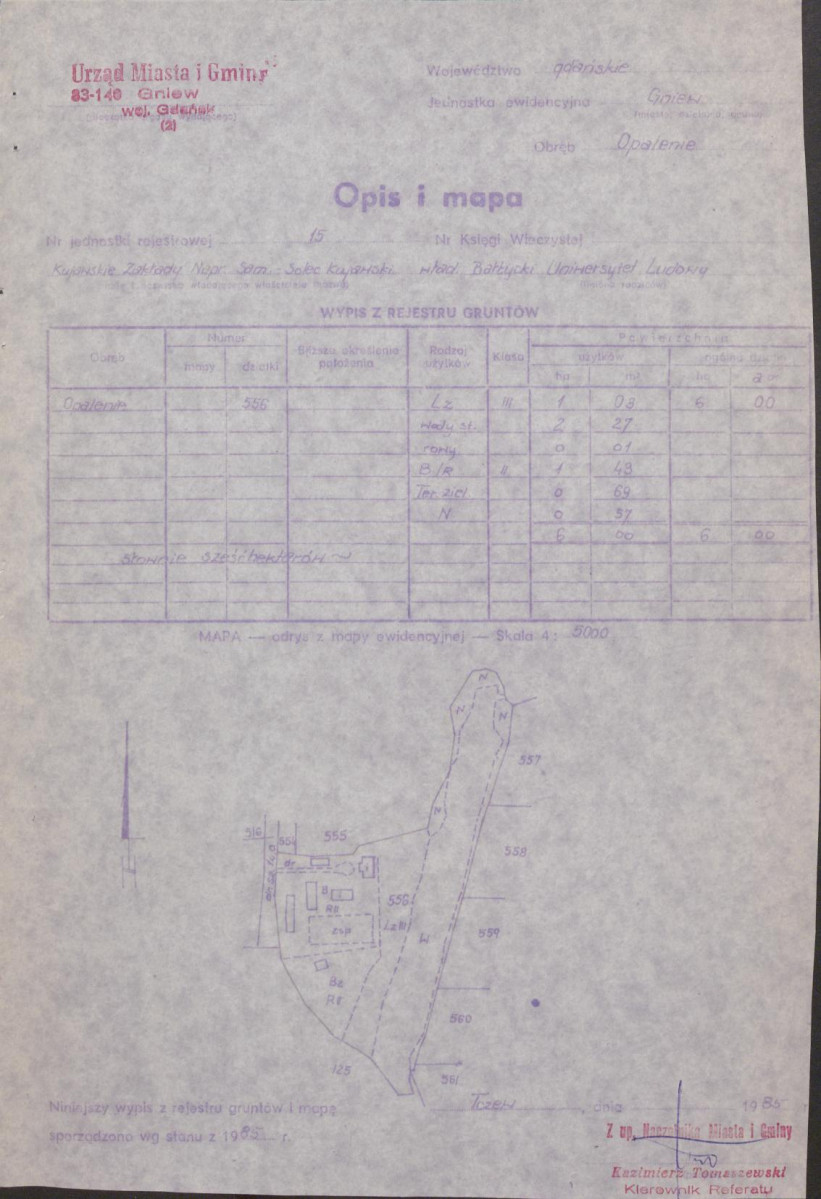 Urząd Miasta i Gminy
83-140 Gniew
woj. Gdańsk
(2)
Województwo gdańskie
Jednostka ewidencyjna Gniew
Obręb Opalenie
Opis i mapa
Nr jednostki rejestrowej 15 Nr Księgi Wieczystej
Kujawskie Zakłady Napr. Sam. Solec Kujawski władl. Bałtycki Uniwersytet Ludowy
WYPIS Z REJESTRU GRUNTÓW
Obręb Numer mapy działki Bliższe określenie położenia Rodzaj użytków Klasa Powierzchnia użytków ha m²
ha a
Opalenie 556 Lz III 1 03 6 00
wody st. 2 27
rowy 0 01
B/R II 1 43
Ter. ziel. 0 69
N 0 57
6 00 6 00
słownie sześć hektarów
MAPA — odrys z mapy ewidencyjnej — Skala 1: 5000
N
N
N
557
N
516
554
555
558
dr
556
B
RII
Lz III
559
W
Bz
RII
560
125
561
Niniejszy wypis z rejestru gruntów i mapę
Tczew, dnia 1985 r
sporządzono wg stanu z 1985 r.
Z up. Naczelnika Miasta i Gminy
Kazimierz Tomaszewski
Kierownik Referatu